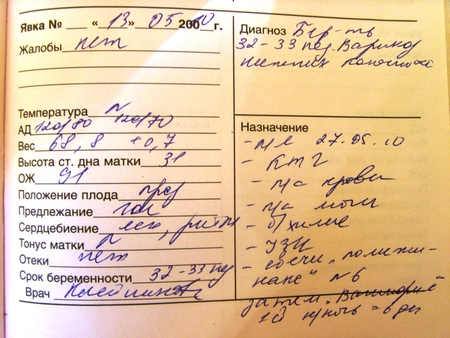 Явка № «13» 05 2000 г.
Жалобы нет
Температура N
АД 120/80 120/70
Вес 68,8 +0,7
Высота ст. дна матки 31
ОЖ 91
Положение плода прод
Предлежание гол
Сердцебиение ясн, ритм
Тонус матки N
Отеки нет
Срок беременности 32-33 нед
Врач
Диагноз Бер-ть
32-33 нед. Варикоз
нижних конечност
Назначение
- 27.05.10
- КТГ
- на крови
- на мочи
- б/химию
- УЗИ
- свечи "полижи-
накс" N6
затем